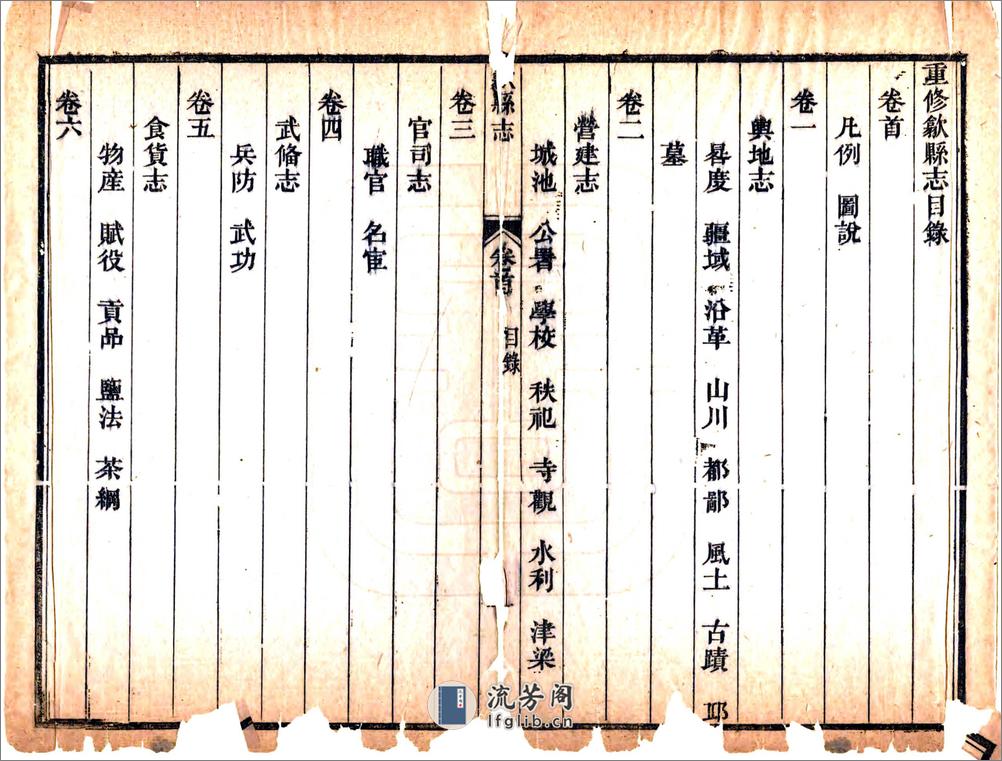 重修歙縣志目錄
卷首
凡例 圖說
卷一
輿地志
晷度 疆域 沿革 山川 都鄙 風土 古蹟 邱
墓
卷二
營建志
城池 公署 學校 秩祀 寺觀 水利 津梁
縣志 卷首 目錄
卷三
官司志
職官 名宦
卷四
武備志
兵防 武功
卷五
食貨志
物産 賦役 貢品 鹽法 茶綱
卷六
流芳阁
lfglib.cn